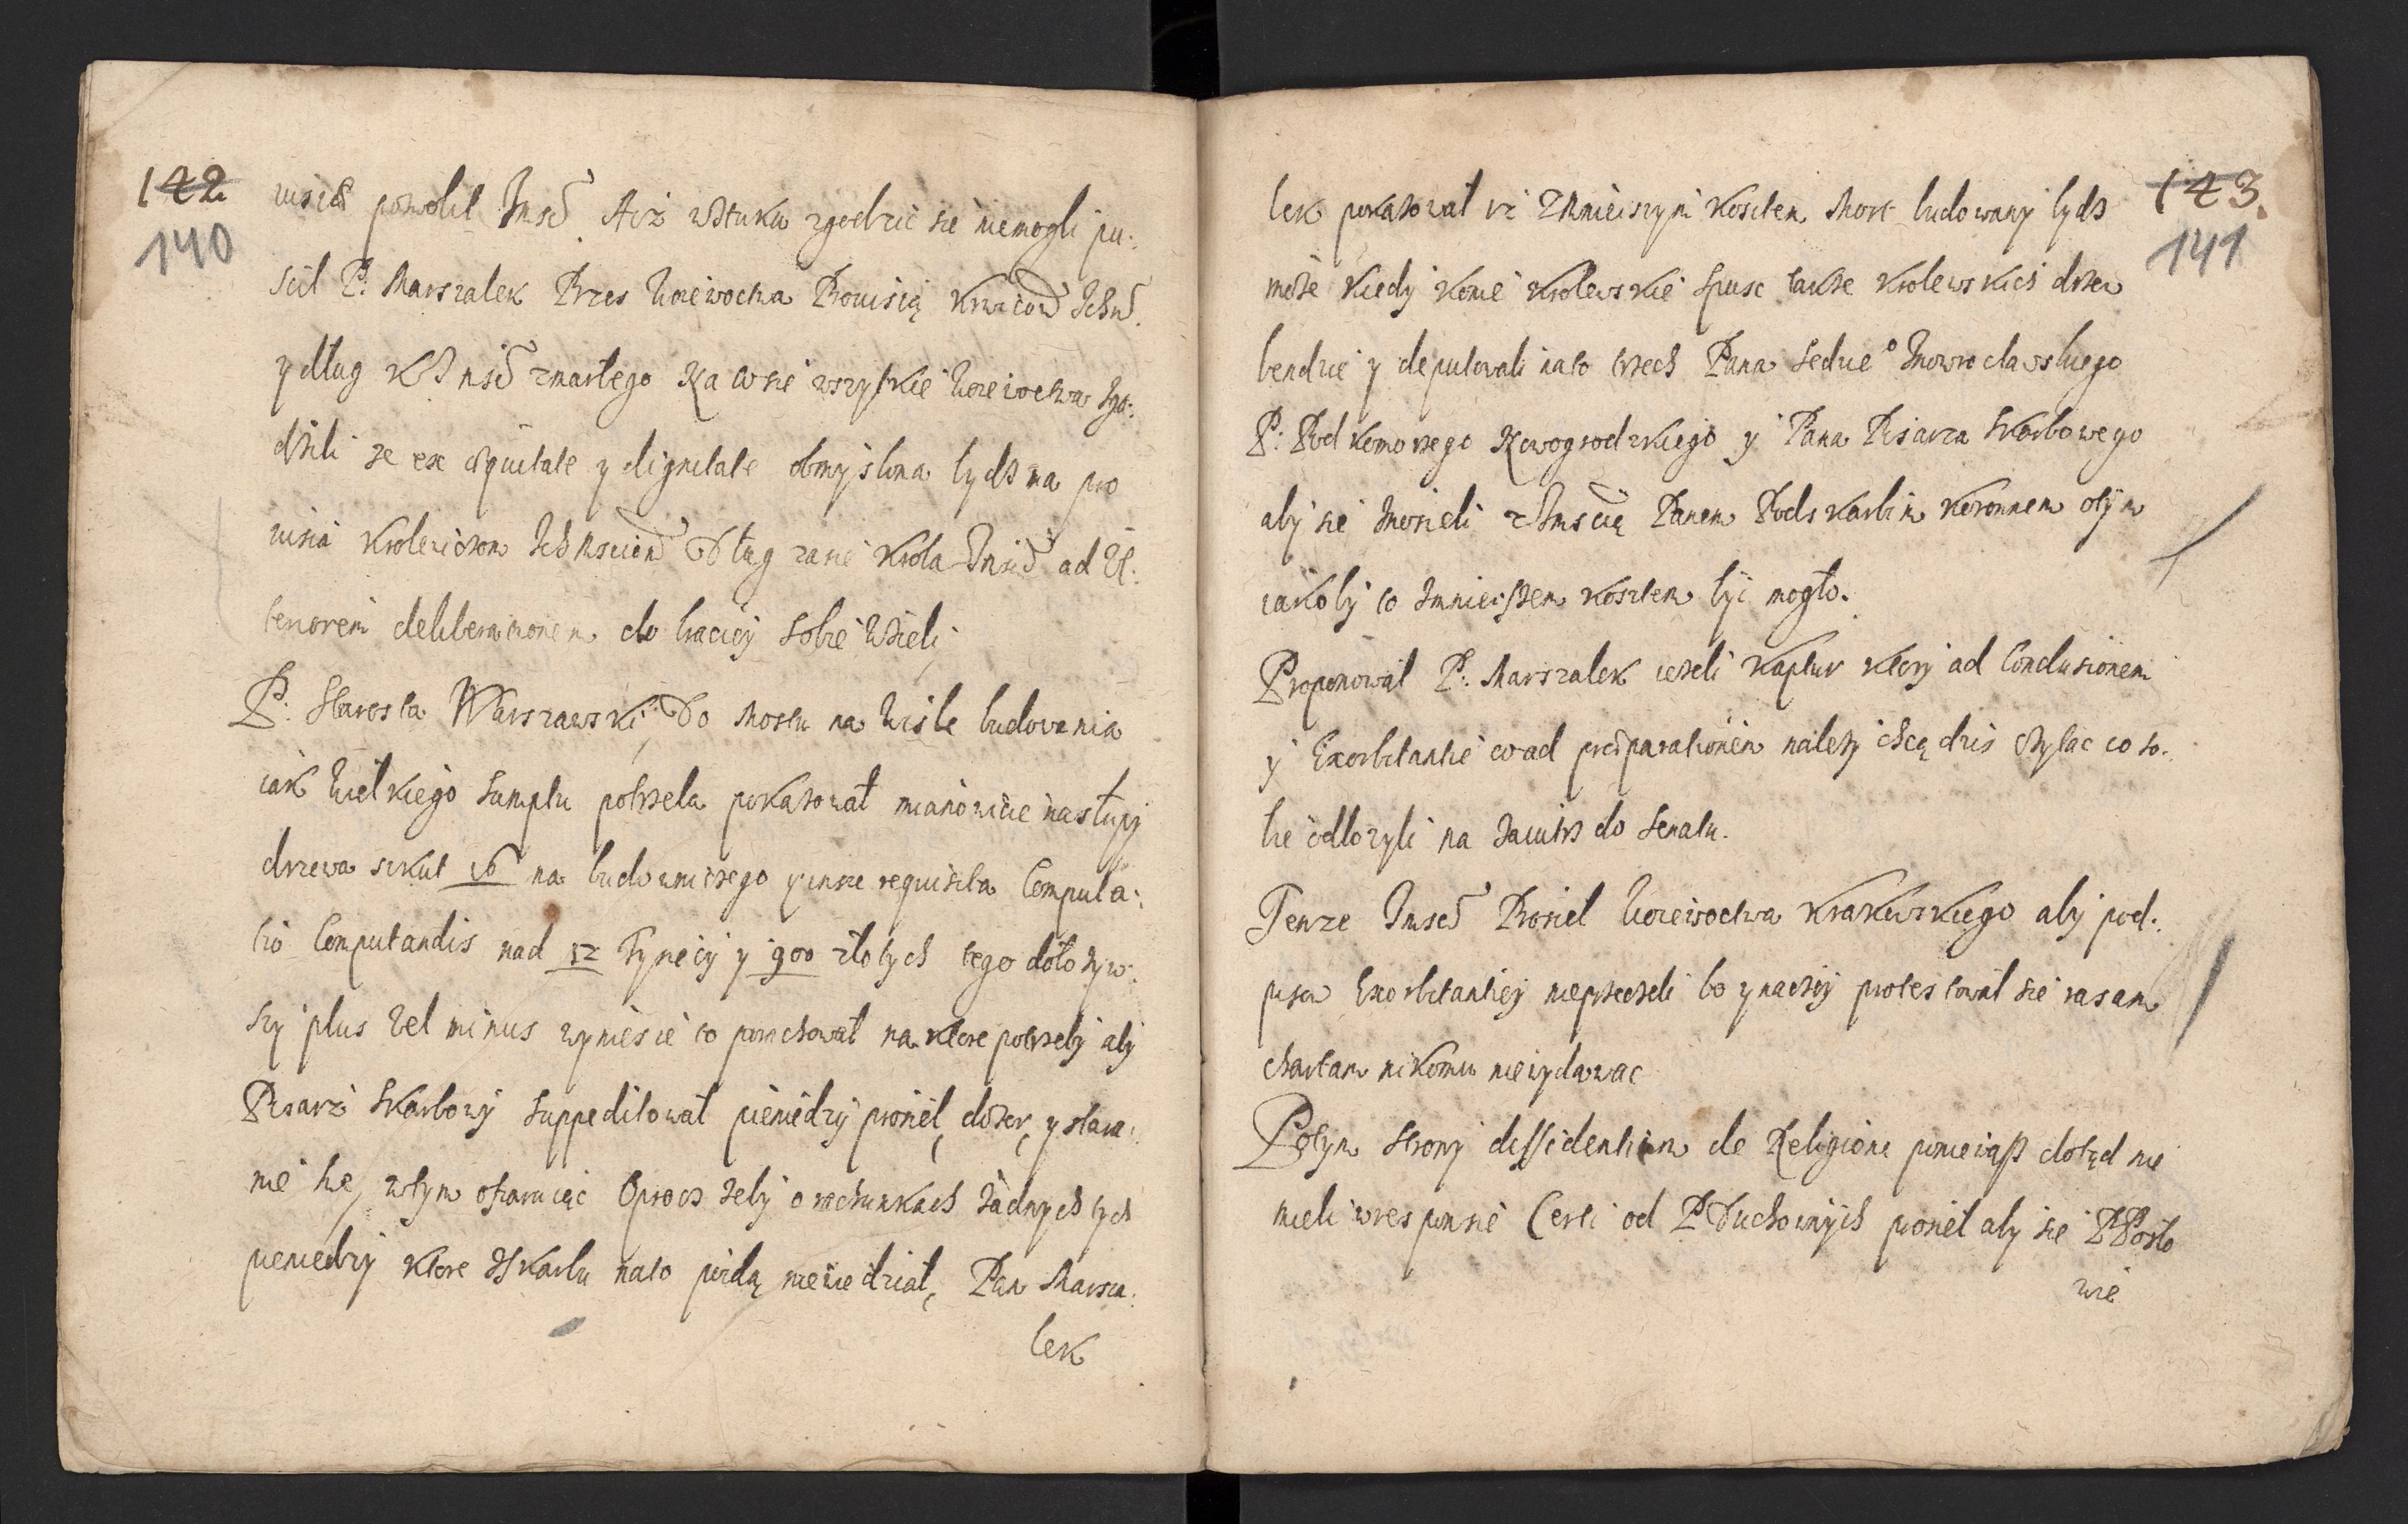 142
140
pozwolił Jmsć Aiż wsztuku zgodzić się niemogli pu:
scił P: Marszalek Przes Woiewoctwa Prouisią Krwiców Ichm̃.
y dług KJmsć zmarłego Na co sie wszystkie Woiewoctwa zgo:
dzili ze ex æquitate y dignitate obmyslona bydz ma pro
uisia Krolewiczom Ich Msciom Dług zasie Krola Jmsci ad
tenorem deliberationem do braciey sobie wzieli,
P: Starosta Warszawski, Do Mostu na Wisle budowania
iak Wielkiego sumptu potrzeba pokazował mianowicie nastupy
drzewa szkut 16 na budowniczego y insze requisita Computa:
tio Computandis nad 12 Tysięcy y 900 złotych tego dołozyw:
szy plus vel minus wyniesie to porachował na ktore potrzeby aby
Pisarz Skarbowy suppeditował pieniedzy prosieł, dozor, y stara:
nie swe, wtym ofiaruiąc Oprocz zeby o rachunkach żadnych tych
pieniedzy ktore Zskarbu nato poidą niewiedział, Pan Marsza:
lek
143.
141
lek pokazował iż Zmnieiszym Kosztem Most budowany bydz
może kiedy Konie Krolewskie spusc także Krolewskich drzew
bendzie y deputowali nato trzech Pana sedzie° Inowrocławskiego
P: Podkomorzego Nowogrodzkiego y Pana Pisarza Skarbowego
aby sie znosieli z Jmscią Panem Podskarbim Koronnem otym
iakoby to zmnieiszem kosztem być mogło.
Proponował P: Marszalek iezeli Kaptur ktory ad Conclusionem
y Exorbitantie co ad præparationem należy chcą dzis czytac co so:
bie odlozyli na Zaiutrz do Senatu.
Tenze Jmsć Prosieł Woiewoctwa Krakowskiego aby pod:
pisow Exorbitantiey nieprzeczeli bo ynaczey protestował sie rasam
chartam nikomu niewydawac
Potym strony dissidentium de Religione poniewasz dotąd nie
mieli wresponsie Certi od P Duchownych prosieł aby sie PPosło
wie